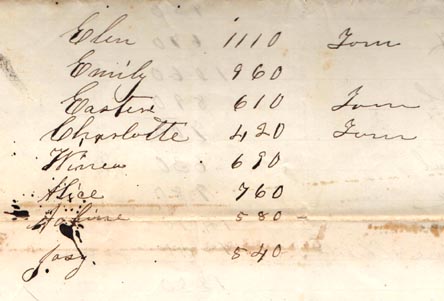 Elen 1110 Tom
Emily 960
Easter 610 Tom
Charlotte 420 Tom
Winea 690
Alice 760
580 -
Josy. 540